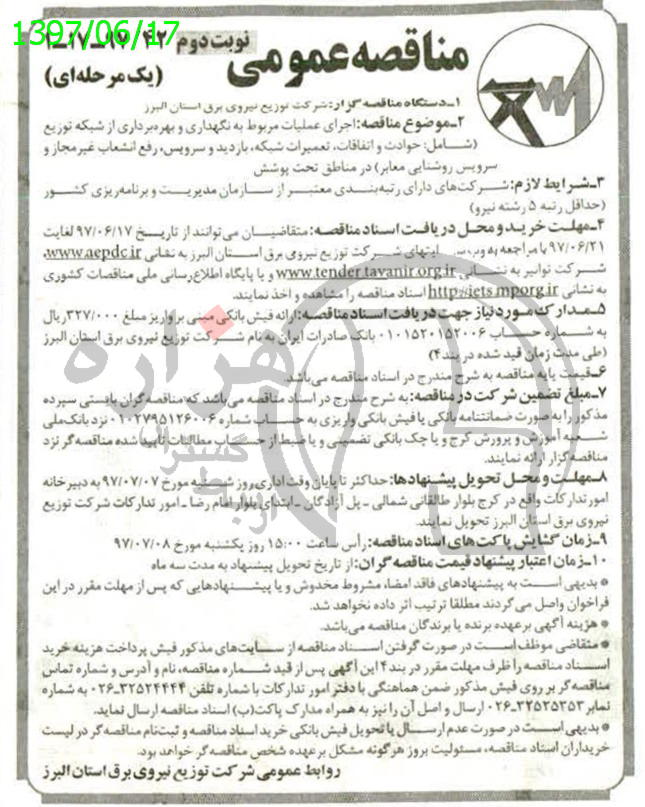 1397/06/17
نوبت دوم
مناقصه عمومی
(یک مرحله‌ای)
۱ـ دستگاه مناقصه گزار: شرکت توزیع نیروی برق استان البرز
۲ـ موضوع مناقصه: اجرای عملیات مربوط به نگهداری و بهره‌برداری از شبکه توزیع
(شامل: حوادث و اتفاقات، تعمیرات شبکه، بازدید و سرویس، رفع انشعاب غیرمجاز و
سرویس روشنایی معابر) در مناطق تحت پوشش
۳ـ شرایط لازم: شرکت‌های دارای رتبه‌بندی معتبر از سازمان مدیریت و برنامه‌ریزی کشور
(حداقل رتبه ۵ رشته نیرو)
۴ـ مهلت خرید و محل دریافت اسناد مناقصه: متقاضیان می‌توانند از تاریخ ۹۷/۰۶/۱۷ لغایت
۹۷/۰۶/۲۱ با مراجعه به وب سایتهای شرکت توزیع نیروی برق استان البرز به نشانی www.aepdc.ir،
شرکت توانیر به نشانی www.tender.tavanir.org.ir و یا پایگاه اطلاع‌رسانی ملی مناقصات کشوری
به نشانی http://iets.mporg.ir اسناد مناقصه را مشاهده و اخذ نمایند.
۵ـ مدارک مورد نیاز جهت دریافت اسناد مناقصه: ارائه فیش بانکی مبنی بر واریز مبلغ ۳۲۷/۰۰۰ ریال
به شماره حساب ۰۱۰۱۵۲۰۱۵۲۰۰۶ بانک صادرات ایران به نام شرکت توزیع نیروی برق استان البرز
(طی مدت زمان قید شده در بند ۴)
۶ـ قیمت پایه مناقصه به شرح مندرج در اسناد مناقصه می‌باشد.
۷ـ مبلغ تضمین شرکت در مناقصه: به شرح مندرج در اسناد مناقصه می‌باشد که مناقصه گران بایستی سپرده
مذکور را به صورت ضمانتنامه بانکی یا فیش بانکی واریزی به حساب شماره ۰۱۰۲۷۹۵۱۲۶۰۰۶ نزد بانک ملی
شعبه آموزش و پرورش کرج و یا چک بانکی تضمینی و یا ضبط از حساب مطالبات تأیید شده مناقصه گر نزد
مناقصه گزار ارائه نمایند.
۸ـ مهلت و محل تحویل پیشنهادها: حداکثر تا پایان وقت اداری روز شنبه مورخ ۹۷/۰۷/۰۷ به دبیرخانه
امور تدارکات واقع در کرج بلوار طالقانی شمالی ـ پل آزادگان ـ ابتدای بلوار امام رضا ـ امور تدارکات شرکت توزیع
نیروی برق استان البرز تحویل نمایند.
۹ـ زمان گشایش پاکت‌های اسناد مناقصه: رأس ساعت ۱۵:۰۰ روز یکشنبه مورخ ۹۷/۰۷/۰۸
۱۰ـ زمان اعتبار پیشنهاد قیمت مناقصه گران: از تاریخ تحویل پیشنهاد به مدت سه ماه
* بدیهی است به پیشنهادهای فاقد امضاء، مشروط مخدوش و یا پیشنهادهایی که پس از مهلت مقرر در این
فراخوان واصل می‌گردند مطلقا ترتیب اثر داده نخواهد شد.
* هزینه آگهی برعهده برنده یا برندگان مناقصه می‌باشد.
* متقاضی موظف است در صورت گرفتن اسناد مناقصه از سایت‌های مذکور فیش پرداخت هزینه خرید
اسناد مناقصه را ظرف مهلت مقرر در بند ۴ این آگهی پس از قید شماره مناقصه، نام و آدرس و شماره تماس
مناقصه گر بر روی فیش مذکور ضمن هماهنگی با دفتر امور تدارکات با شماره تلفن ۳۲۵۲۴۴۴۴ـ۰۲۶ به شماره
نمابر ۳۲۵۲۵۳۵۳ـ۰۲۶ ارسال و اصل آن را نیز به همراه مدارک پاکت (ب) اسناد مناقصه ارسال نماید.
* بدیهی است در صورت عدم ارسال یا تحویل فیش بانکی خرید اسناد مناقصه و ثبت نام مناقصه گر در لیست
خریداران اسناد مناقصه، مسئولیت بروز هرگونه مشکل برعهده شخص مناقصه گر خواهد بود.
روابط عمومی شرکت توزیع نیروی برق استان البرز
هزاره